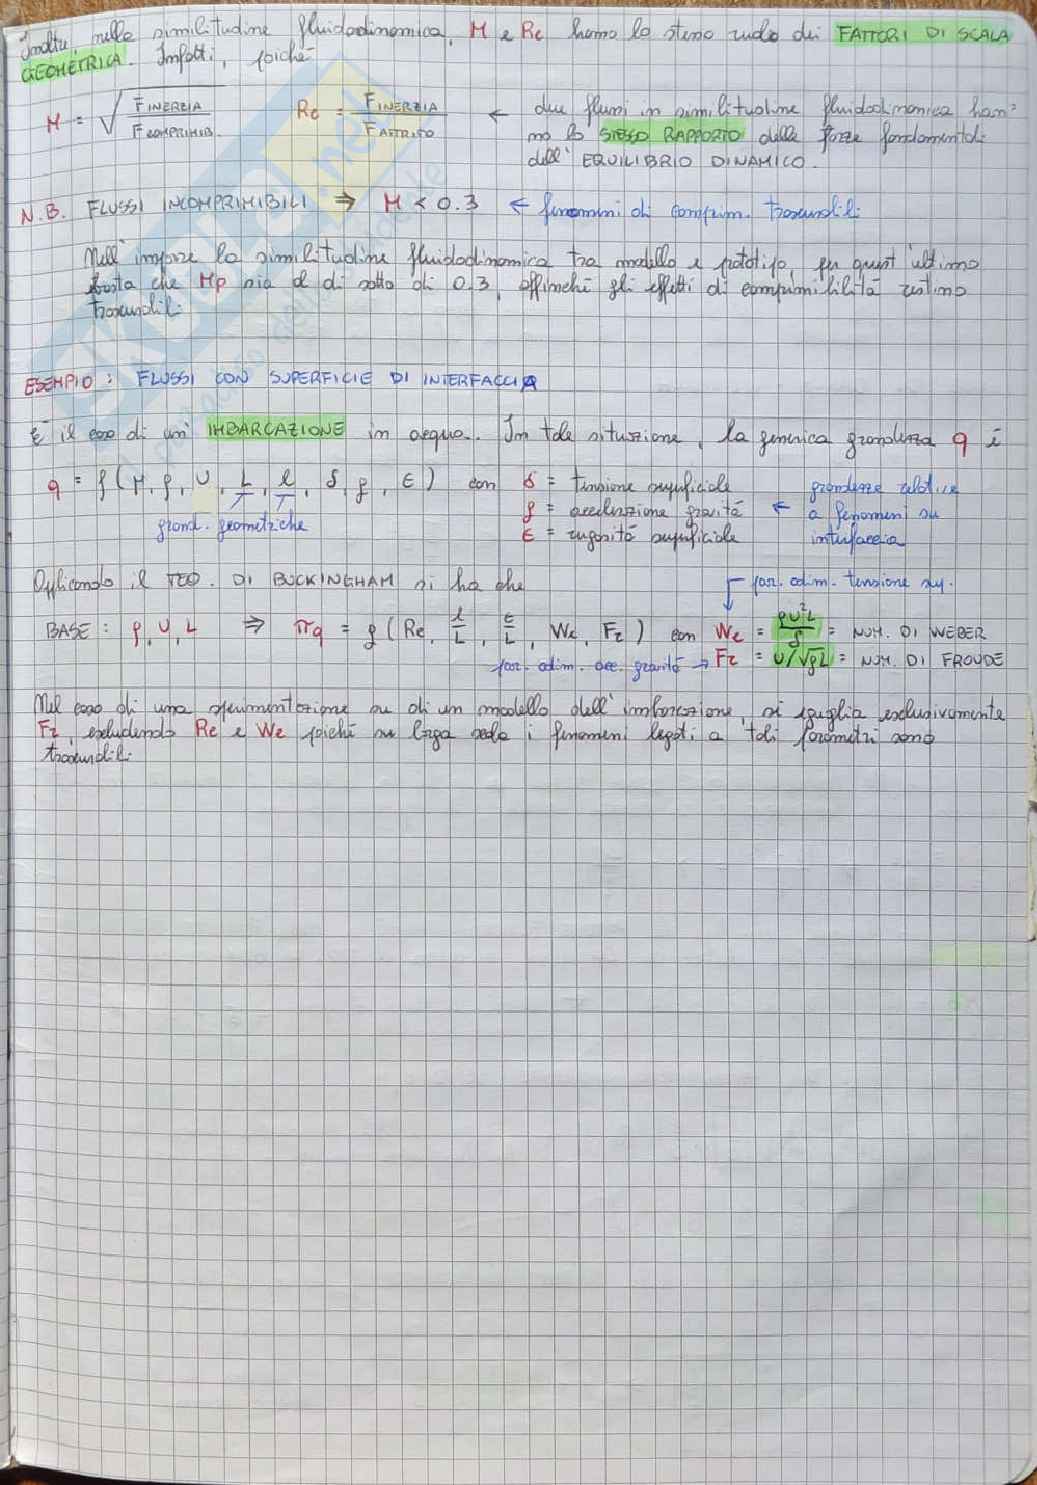 Inoltre, nella similitudine fluidodinamica, M e Re hanno lo stesso ruolo dei FATTORI DI SCALA
GEOMETRICA. Infatti, poiché
M = √(F INERZIA / F COMPRIMIB.) Re = F INERZIA / F ATTRITO ← due flussi in similitudine fluidodinamica han=
no lo STESSO RAPPORTO delle forze fondamentali
dell'EQUILIBRIO DINAMICO.
N.B. FLUSSI INCOMPRIMIBILI ⇒ M < 0.3 ← fenomeni di comprim. trascurabili
Nell'imporre la similitudine fluidodinamica tra modello e prototipo, per quest'ultimo
basta che Mp sia al di sotto di 0.3, affinché gli effetti di comprimibilità restino
trascurabili
ESEMPIO: FLUSSI CON SUPERFICIE DI INTERFACCIA
È il caso di un' IMBARCAZIONE in acqua. In tale situazione, la generica grandezza q è
q = f(μ, ρ, U, L, l, δ, g, ε) con δ = tensione superficiale
grand. geometriche
g = accelerazione gravità
ε = rugosità superficiale
← grandezze relative
a fenomeni su
interfaccia
Applicando il TEO. DI BUCKINGHAM si ha che
par. adim. tensione sup.
BASE: ρ, U, L ⇒ πq = f(Re, l/L, ε/L, We, Fr) con We = ρU²L/δ = NUM. DI WEBER
par. adim. acc. gravità → Fr = U/√gL = NUM. DI FROUDE
Nel caso di una sperimentazione su di un modello dell'imbarcazione, si eguaglia esclusivamente
Fr, escludendo Re e We poiché su larga scala i fenomeni legati a tali parametri sono
trascurabili
SKUOLA.net